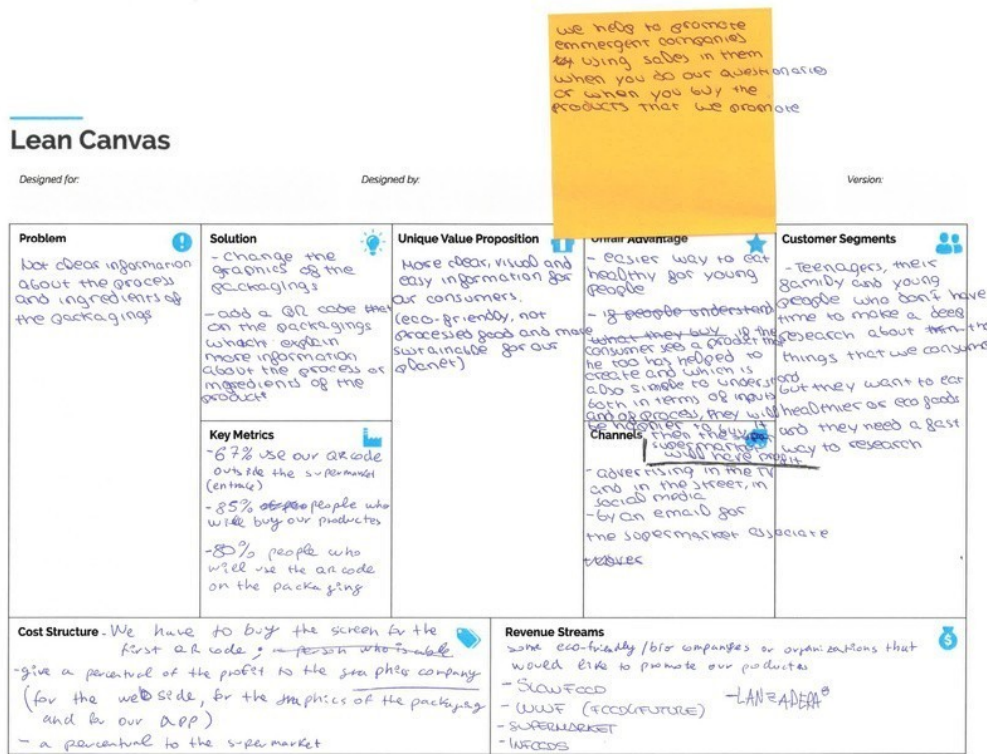 we help to promote
emmergent companies
by using sales in them
when you do our questionaries
or when you buy the
products that we promote
Lean Canvas
Designed for:
Designed by:
Version:
Problem
Not clear information
about the process
and ingredients of
the packagings
Solution
- change the
graphics of the
packagings
- add a QR code that
on the packagings
which explain
more information
about the process or
ingredients of the
product
Key Metrics
- 67% use our QR code
outside the supermarket
(entrace)
- 85% people who
will buy our productes
- 80% people who
will use the QR code
on the packaging
Unique Value Proposition
More clear, visual and
easy information for
our consumers.
(eco-friendly, not
processed food and more
sustainable for our
planet)
Unfair Advantage
- easier way to eat
healthy for young
people
- if people understand
what they buy if the
consumer see a product that
he too has helped to
create and which is
also simple to understand
both in terms of inputs
and of process, they will
be happier to buy it
then the
supermarket
will have profit
Channels
- advertising in the TV
and in the street, in
social media
- by an email for
the supermarket associate
Customer Segments
- Teenagers, their
family and young
people who don't have
time to make a deep
research about the
things that we consume
but they want to eat
healthier or eco foods
and they need a fast
way to research
Cost Structure
- We have to buy the screen for the
first QR code; a person who is able
- give a percentual of the profit to the graphics company
(for the web side, for the graphics of the packaging
and for our app)
- a percentual to the supermarket
Revenue Streams
some eco-friendly/bio companies or organizations that
would like to promote our productes
- SLOWFOOD
- WWF (FOOD4FUTURE)
- SUPERMARKET
- INFOODS
- LANZADERA